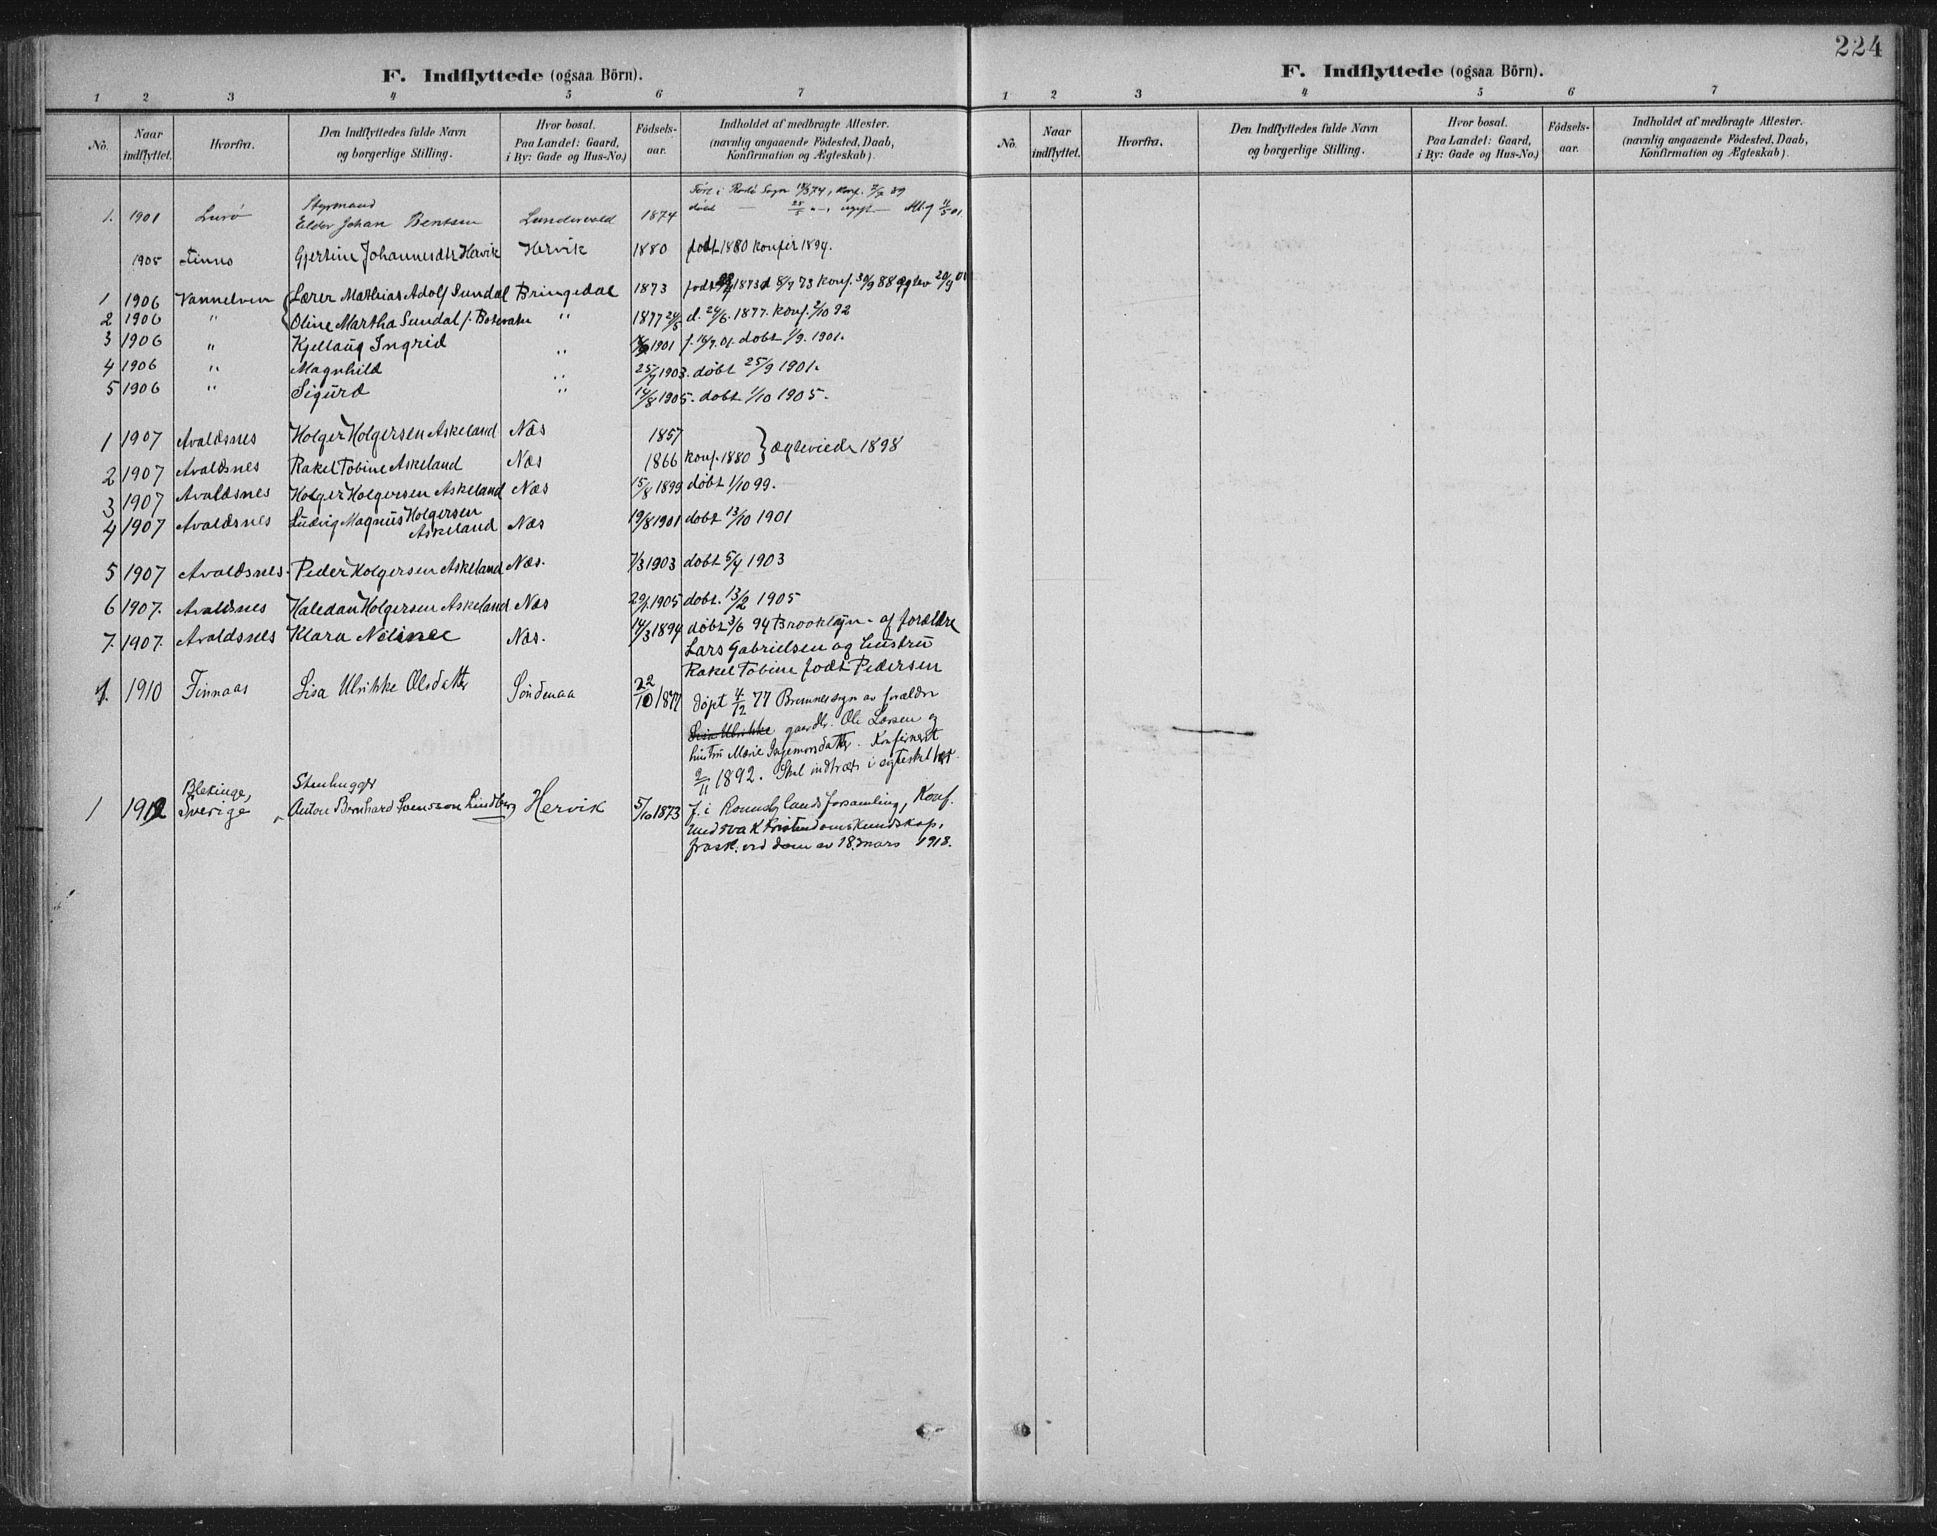 224
F. Indflyttede (ogsaa Börn).
1 2 3 4 5 6 7
No. Naar indflyttet. Hvorfra. Den Indflyttedes fulde Navn og borgerlige Stilling. Hvor bosat. Paa Landet: Gaard, i By: Gade og Hus-No.) Födsels-aar. Indholdet af medbragte Attester. (navnlig angaaende Födested, Daab, Konfirmation og Ægteskab).
Styrmand
1. 1901 Lurø Johan Bentsen 1874
1905 Gjertine Johannesdtr Hervik Hervik 1880 født 1880 konfir 1894.
1 1906 Vannelven Lærer Mathias Adolf Sundal Bringedal 1873
2 1906 " Oline Martha Sundal f. " 1877 24/5 d. 24/6. 1877. konf. 2/10 92
3 1906 " Kjellaug Ingrid " 1901 f. 16/7. 01. døbt 1/9. 1901.
4 1906 " Magnhild " 25/7 1903. døbt 25/9 1901.
5 1906 " Sigurd " 14/8 1905. døbt 1/10 1905.
1 1907 Avaldsnes Holger Holgersen Askeland Næs 1857
2 1907 Avaldsnes Rakel Tobine Askeland Næs 1866 konf. 1880 } ægteviede 1898
3 1907 Avaldsnes Holger Holgersen Askeland Næs 15/8 1899 døbt 1/10 99.
4 1907 Avaldsnes Ludvig Magnus Holgersen Askeland Næs 19/8 1901 døbt 13/10 1901
5 1907 Avaldsnes. Peder Holgersen Askeland Næs. 7/3 1903 døbt 5/4 1903
6 1907. Avaldsnes Haledan Holgersen Askeland Næs 1905 døbt. 13/2 1905
7. 1907. Avaldsnes Klara Næs. 14/3 1894 døbt 3/6 94 Brooklyn - af forældre
Lars Gabrielsen og hustru
Rakel Tobine født Pedersen
1. 1910 Finnaas Lisa Ulrikke Olsdatter Søndenaa 22/10 1877
døpt 4/12 77 Bremnes sogn av forældre
Lisa Ulrikke gaardbr. Ole Larsen og
hustru Marie Ingemonsdatter. Konfirmert
9/11 1892. Skal indtræde i egteskab
Blekinge, Stenhugger
1 1912 Sverige Anton Bernhard Svensson Lindberg Hervik 5/10 1873 f. i Ronneby landsforsamling, Konf.
med svak Kristendomskundskap,
frask. ved dom av 18. mars 1918.
F. Indflyttede (ogsaa Börn).
1 2 3 4 5 6 7
No. Naar indflyttet. Hvorfra. Den Indflyttedes fulde Navn og borgerlige Stilling. Hvor bosat. Paa Landet: Gaard, i By: Gade og Hus-No.) Födsels-aar. Indholdet af medbragte Attester. (navnlig angaaende Födested, Daab, Konfirmation og Ægteskab).